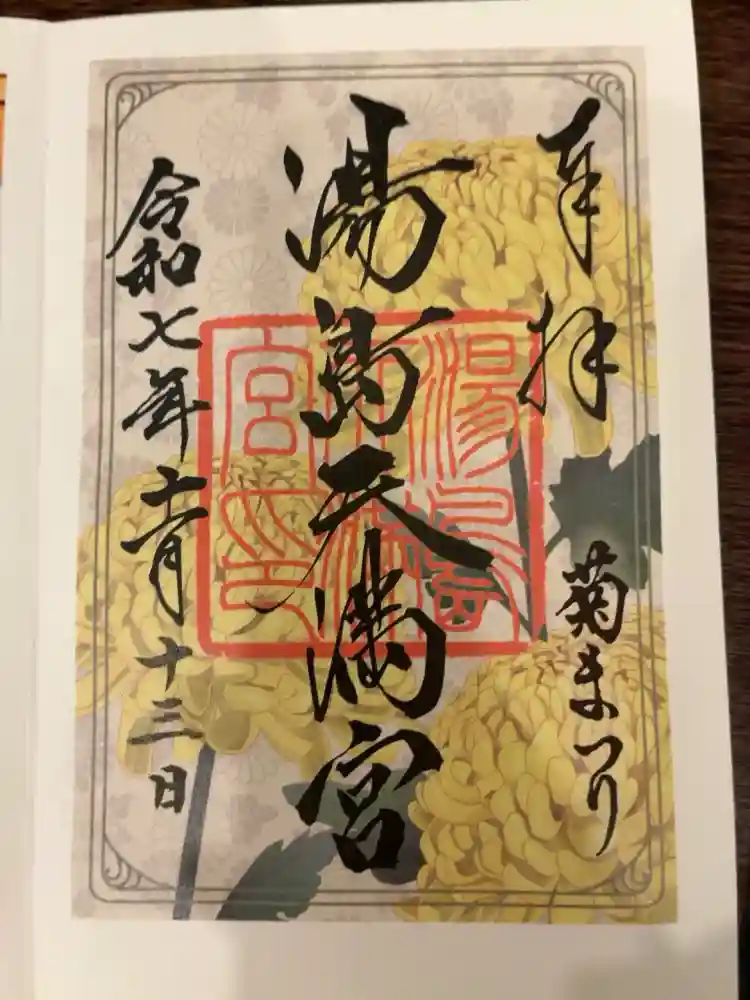 奉拝
菊まつり
湯島天満宮
湯島天満宮印
令和七年十一月十三日